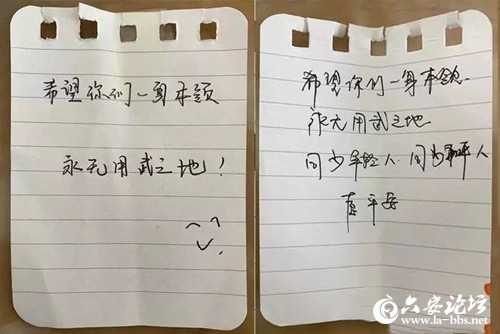 希望你们一身本领
永无用武之地!
希望你们一身本领.
永无用武之地
同为年轻人 同为和平人
平安
六安论坛
www.la-bbs.net